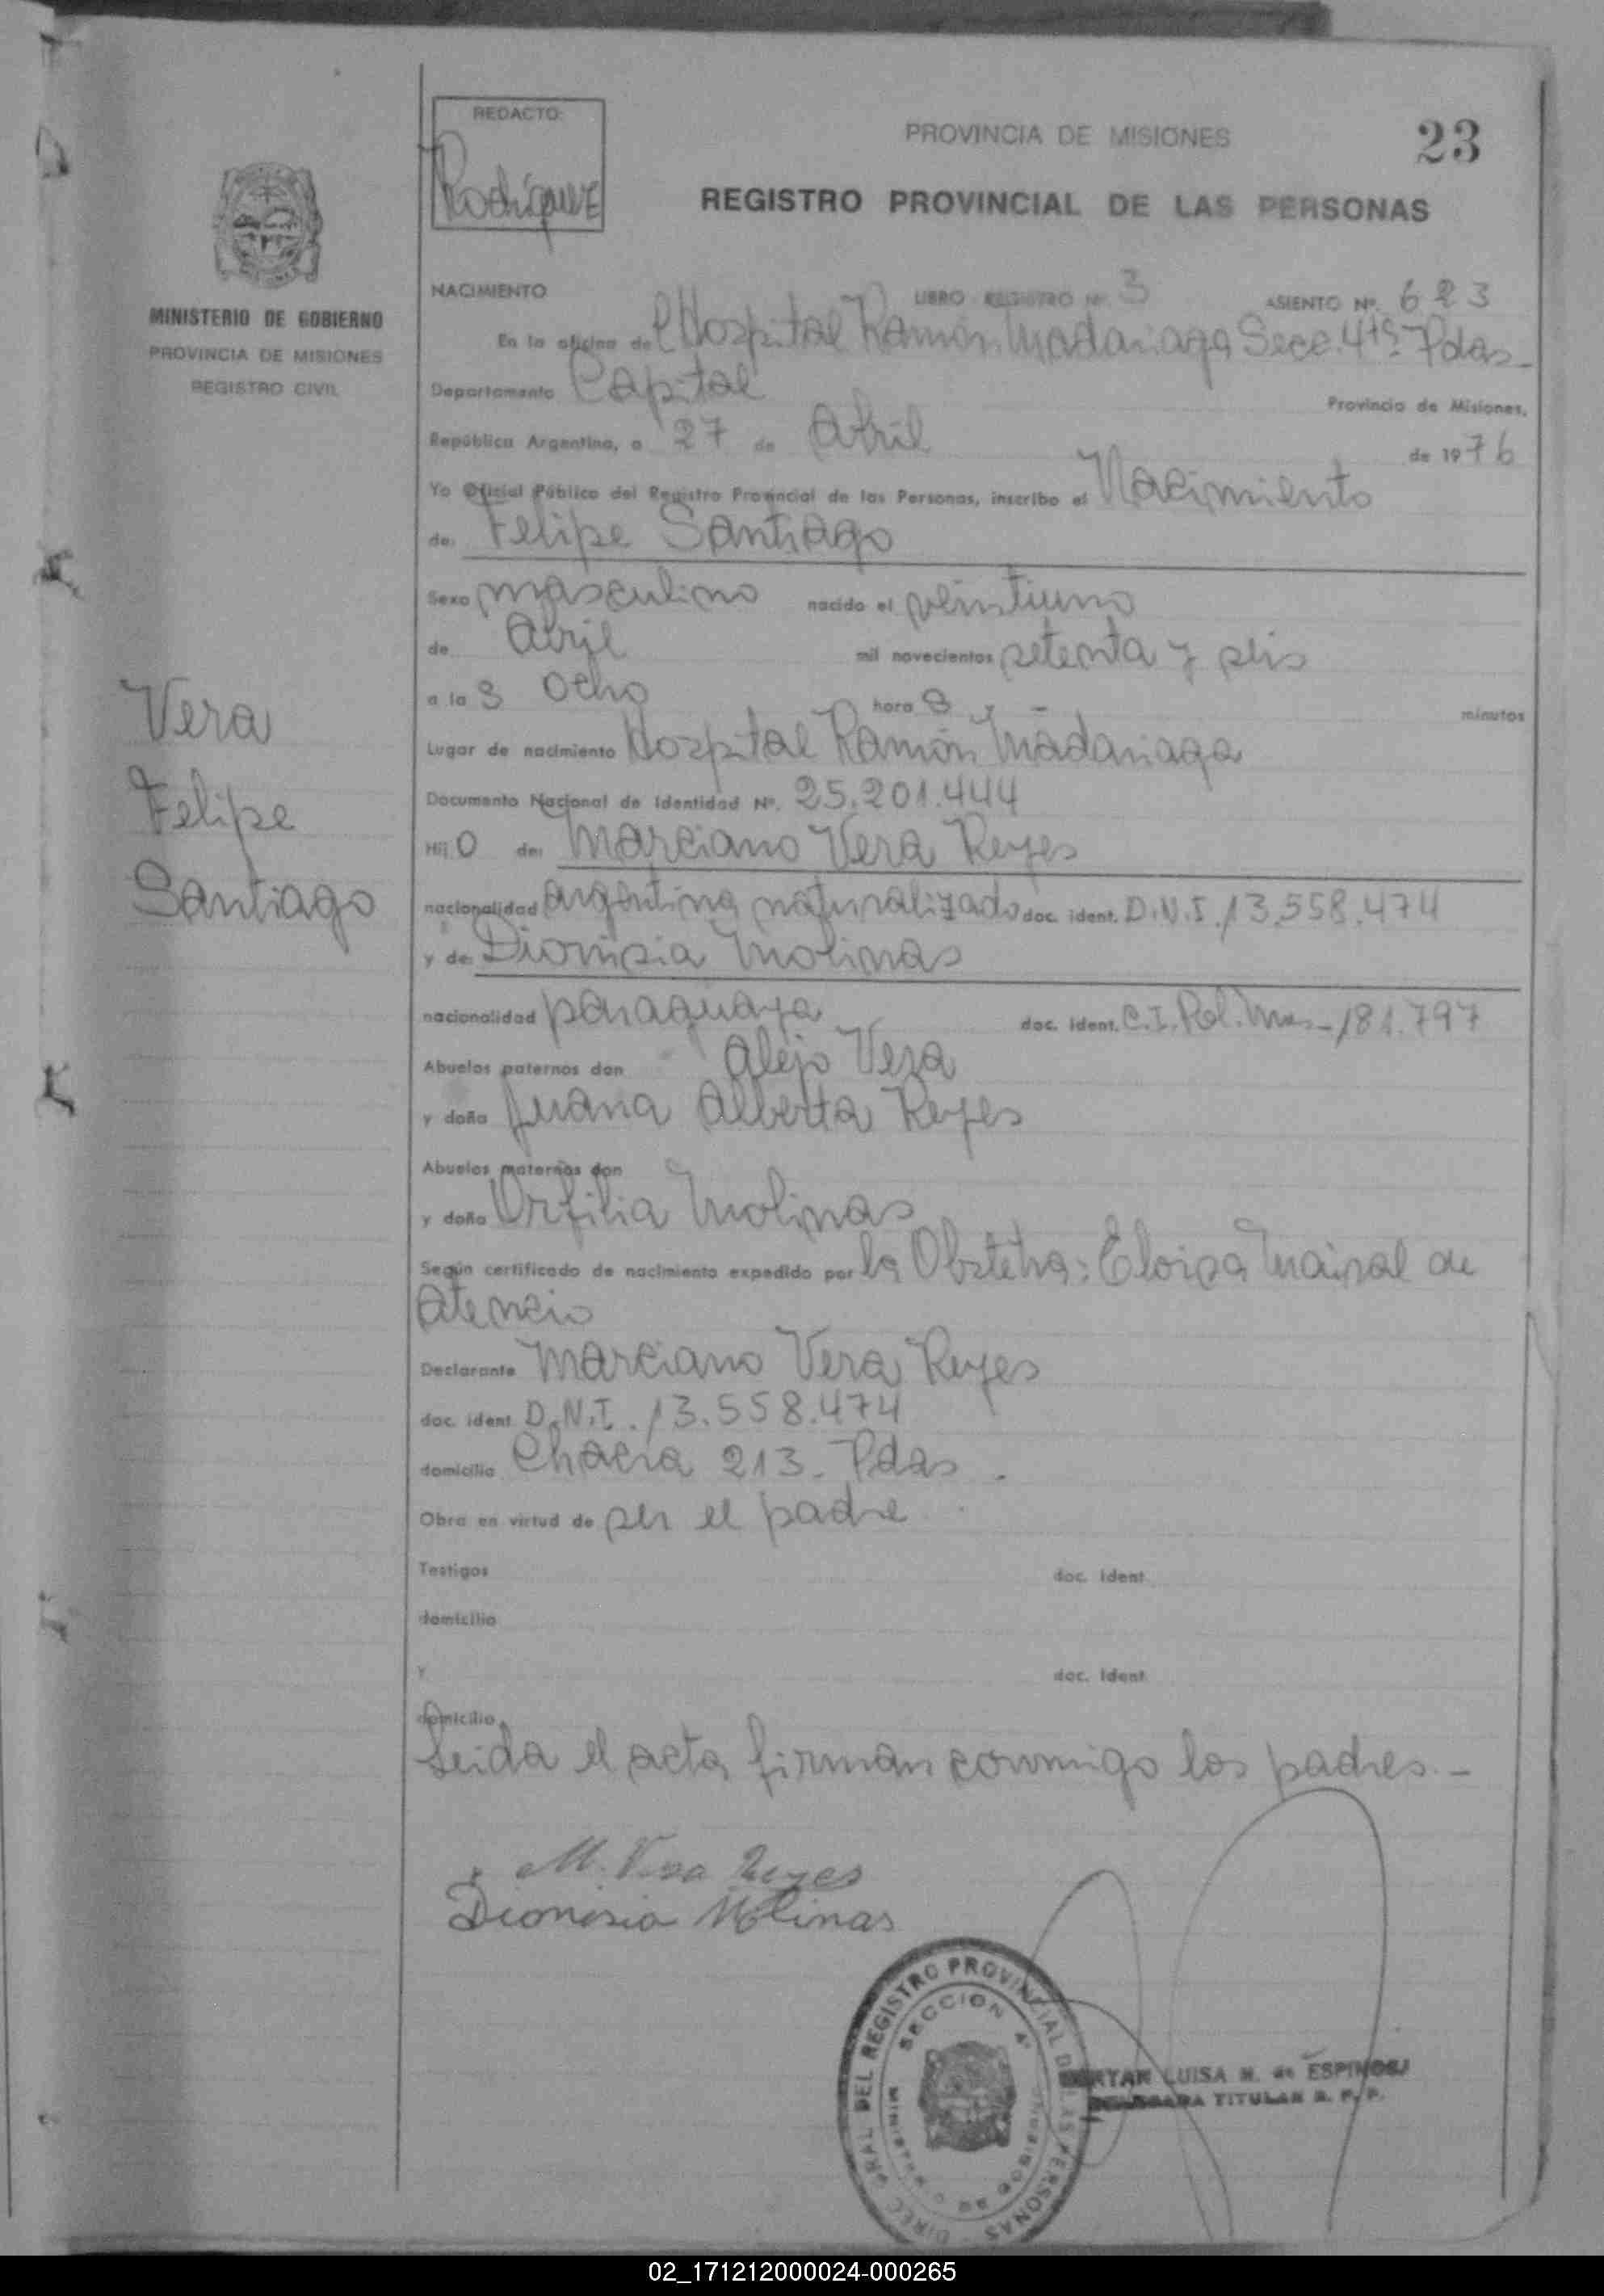 REDACTO:
Rodríguez
PROVINCIA DE MISIONES
23
REGISTRO PROVINCIAL DE LAS PERSONAS
MINISTERIO DE GOBIERNO
PROVINCIA DE MISIONES
REGISTRO CIVIL
NACIMIENTO LIBRO REGISTRO Nº. 3 ASIENTO Nº. 623
En la oficina del Hospital Ramón Madariaga Secc. 4ta. Pdas-
Departamento Capital Provincia de Misiones,
República Argentina, a 27 de Abril de 1976
Yo Oficial Público del Registro Provincial de las Personas, inscribo el Nacimiento
de: Felipe Santiago
Sexo masculino nacido el veintiuno
de Abril mil novecientos setenta y seis
a las ocho horas y - minutos
Lugar de nacimiento Hospital Ramón Madariaga
Documento Nacional de Identidad Nº. 25.201.444
Hijo de: Marciano Vera Reyes
nacionalidad argentina naturalizado doc. ident. D.N.I. 13.558.474
y de: Dionisia Molinas
nacionalidad paraguaya doc. ident. C.I. Pol. Mnes-181.797
Abuelos paternos don Alejo Vera
y doña Juana Alberta Reyes
Abuelos maternos don
y doña Orfilia Molinas
Según certificado de nacimiento expedido por la Obstetra: Eloisa Mairal de
Atencio
Declarante Marciano Vera Reyes
doc. ident. D.N.I. 13.558.474
domicilio Chacra 213- Pdas.
Obra en virtud de ser el padre
Testigos doc. ident.
domicilio
y doc. ident.
domicilio
Leida el acta, firman conmigo los padres.-
Vera
Felipe
Santiago
M. Vera Reyes
Dionisia Molinas
DIREC. GRAL. DEL REGISTRO PROVINCIAL DE LAS PERSONAS
SECCION 4ª
LUISA M. de ESPINOSA
DELEGADA TITULAR R. P. P.
02_171212000024-000265